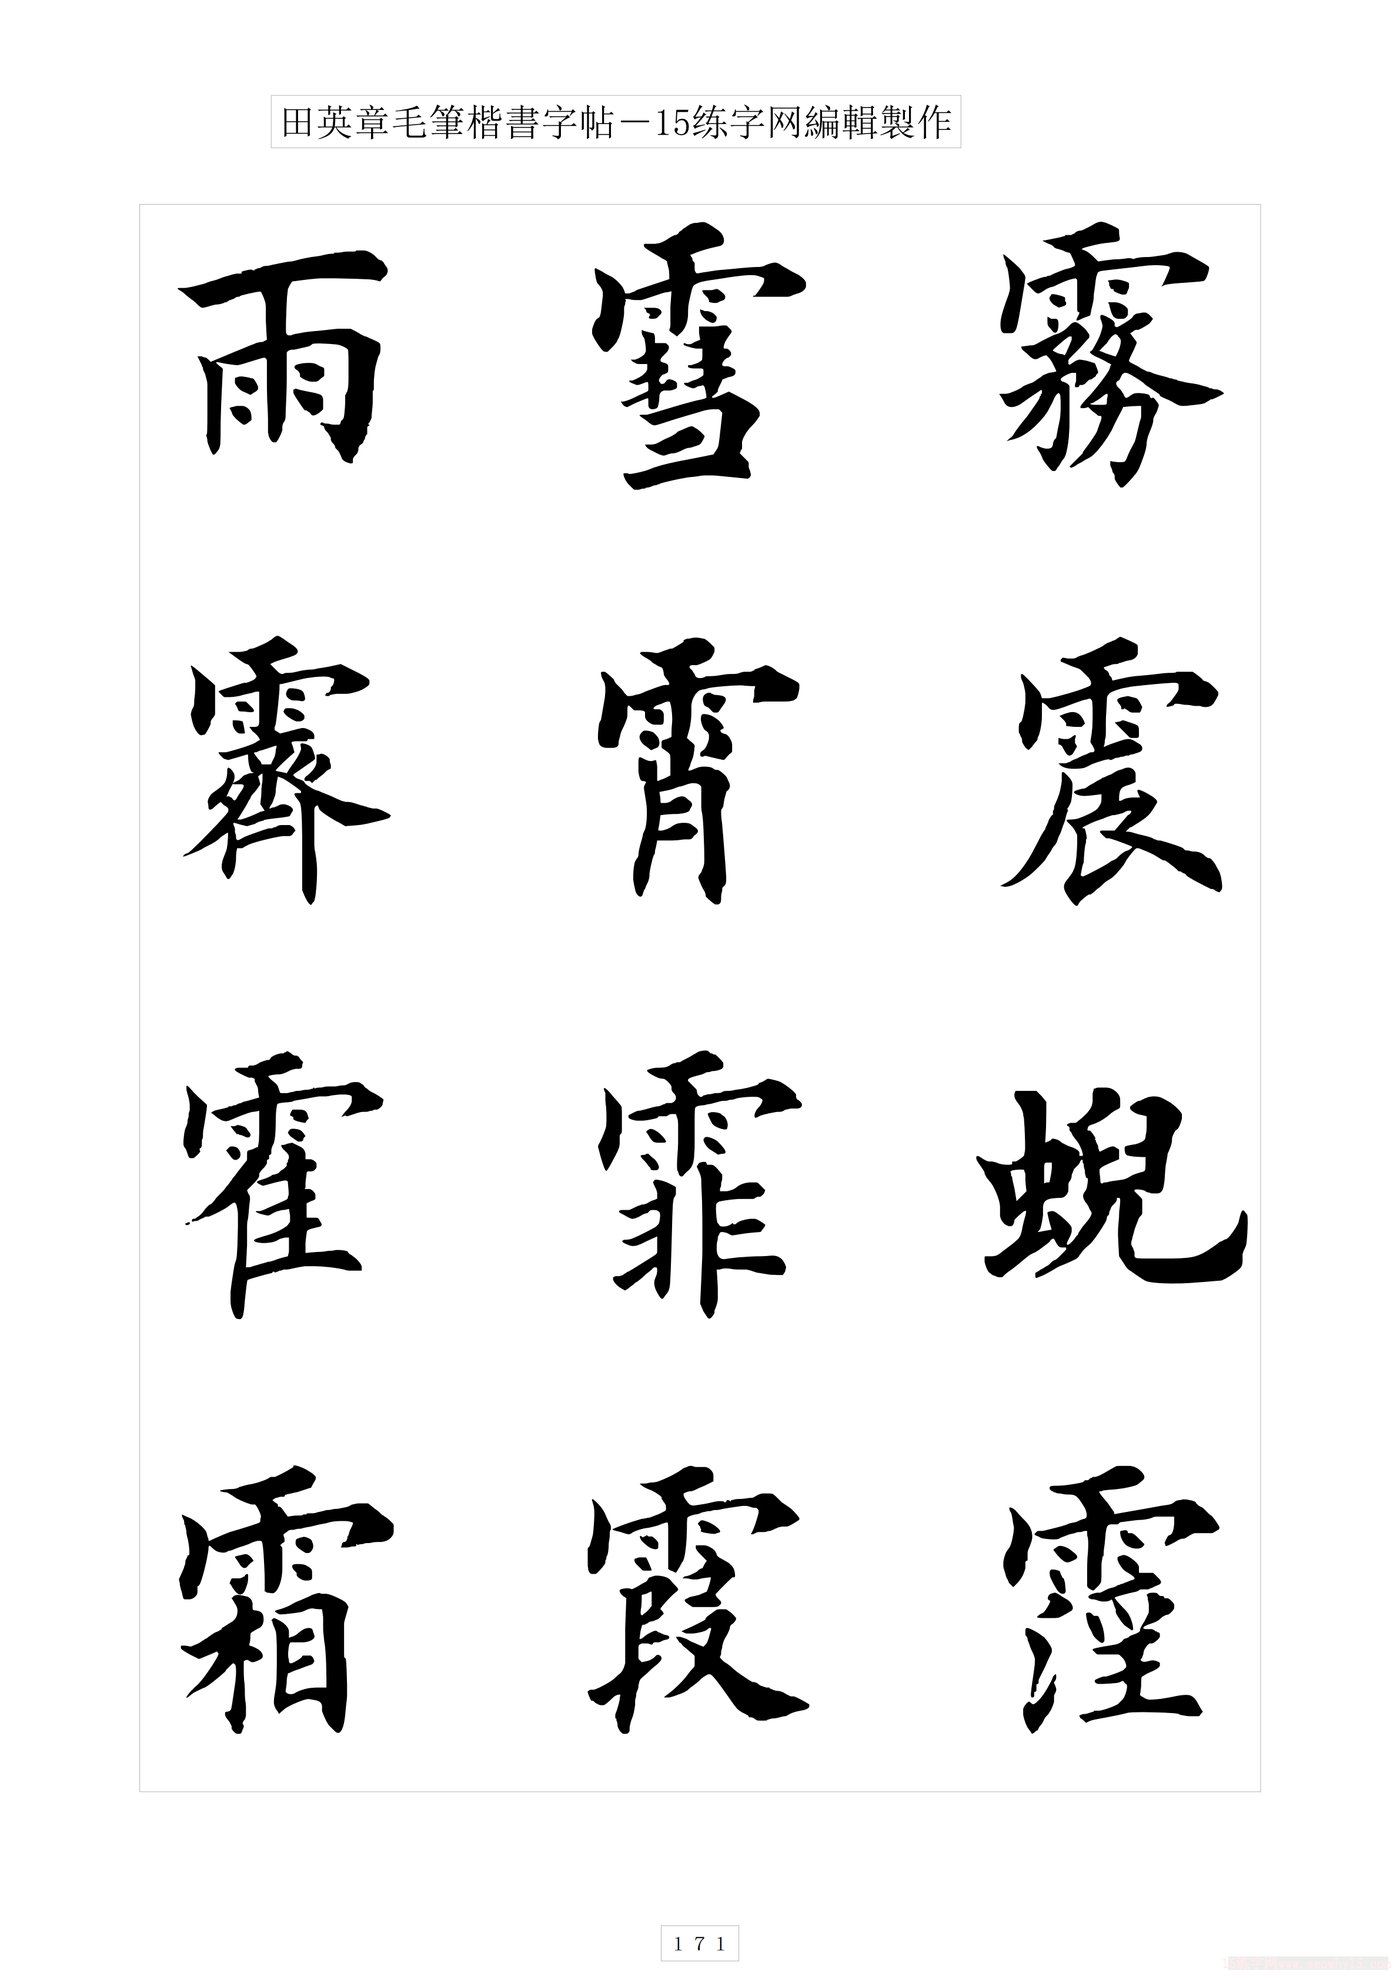 田英章毛筆楷書字帖－15练字网編輯製作
雨 䨮 霧
霽 霄 震
霍 霏 蜺
霜 霞 霪
171